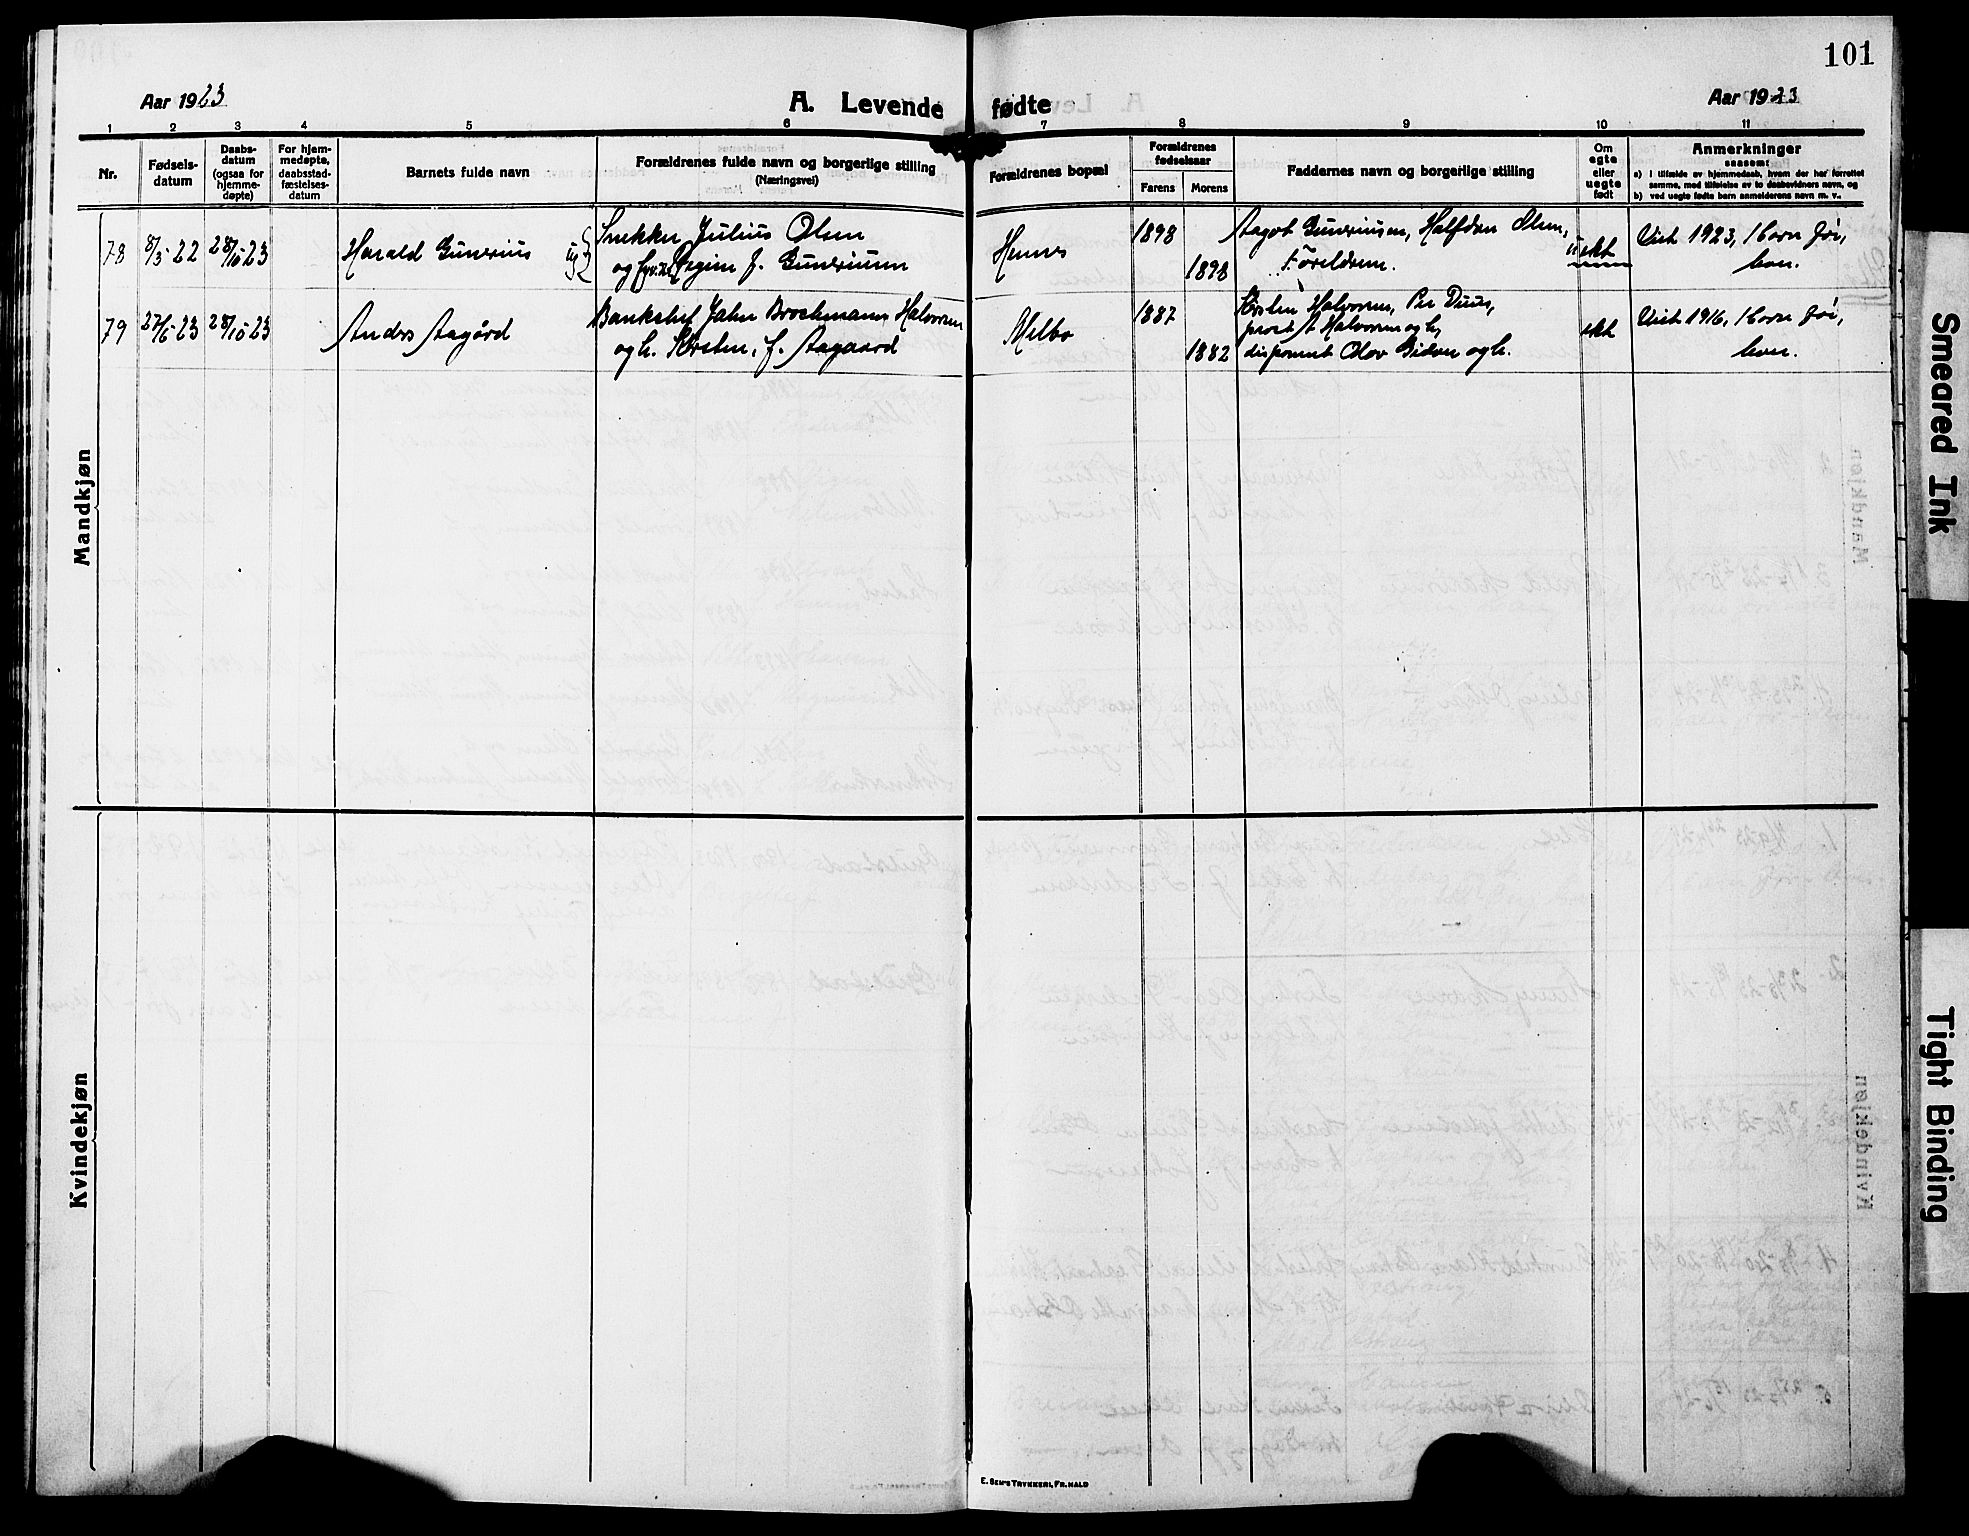 101
Aar 1923
A. Levende fødte
Aar 1923
1 2 3 4 5 6 7 8 9 10 11
Nr.
Fødsels-
datum
Daabs-
datum
(ogsaa for
hjemme-
døpte)
For hjem-
medøpte,
daabsstad-
fæstelses-
datum
Barnets fulde navn
Forældrenes fulde navn og borgerlige stilling
(Næringsvei)
Forældrenes bopæl
Forældrenes
fødselsaar
Farens Morens
Faddernes navn og borgerlige stilling
Om
egte
eller
uegte
født
Anmerkninger
saasom:
a) i tilfælde av hjemmedaab, hvem der har forrettet
samme, med tilføielse av to daabsvidners navn, og
b) ved uegte fødte barn anmelderens navn m. v.
Mandkjøn
78 8/3-22 28/10-23 Harald Gunerius
ug.
Snekker Julius Olsen
og Regine f. Guneriussen
1898
1898
Aagot Guneriussen, Halfdan Olsen,
Foreldrene.
uekt
Viet 1923, 1 barn før,
lever.
79 27/6-23 28/10-23 Anders Aagård
Banksjef Jahn Brochmann Halvorsen
og h. Kirsten, f. Aagaard
Melbo
1887
1882
Kirsten Halvorsen, Per Duus,
prost Halvorsen og h,
disponent Olov Giæver og h.
ekt
Viet 1916, 1 barn før,
lever.
Kvindekjøn
E. SEM'S TRYKKERI, FR.HALD
Smeared Ink
Tight Binding